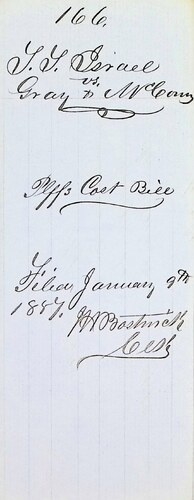 166.
T. T. Israel
vs.
Gray & McConn
Plffs Cost Bill
Filed January 9th
1887.
Clk